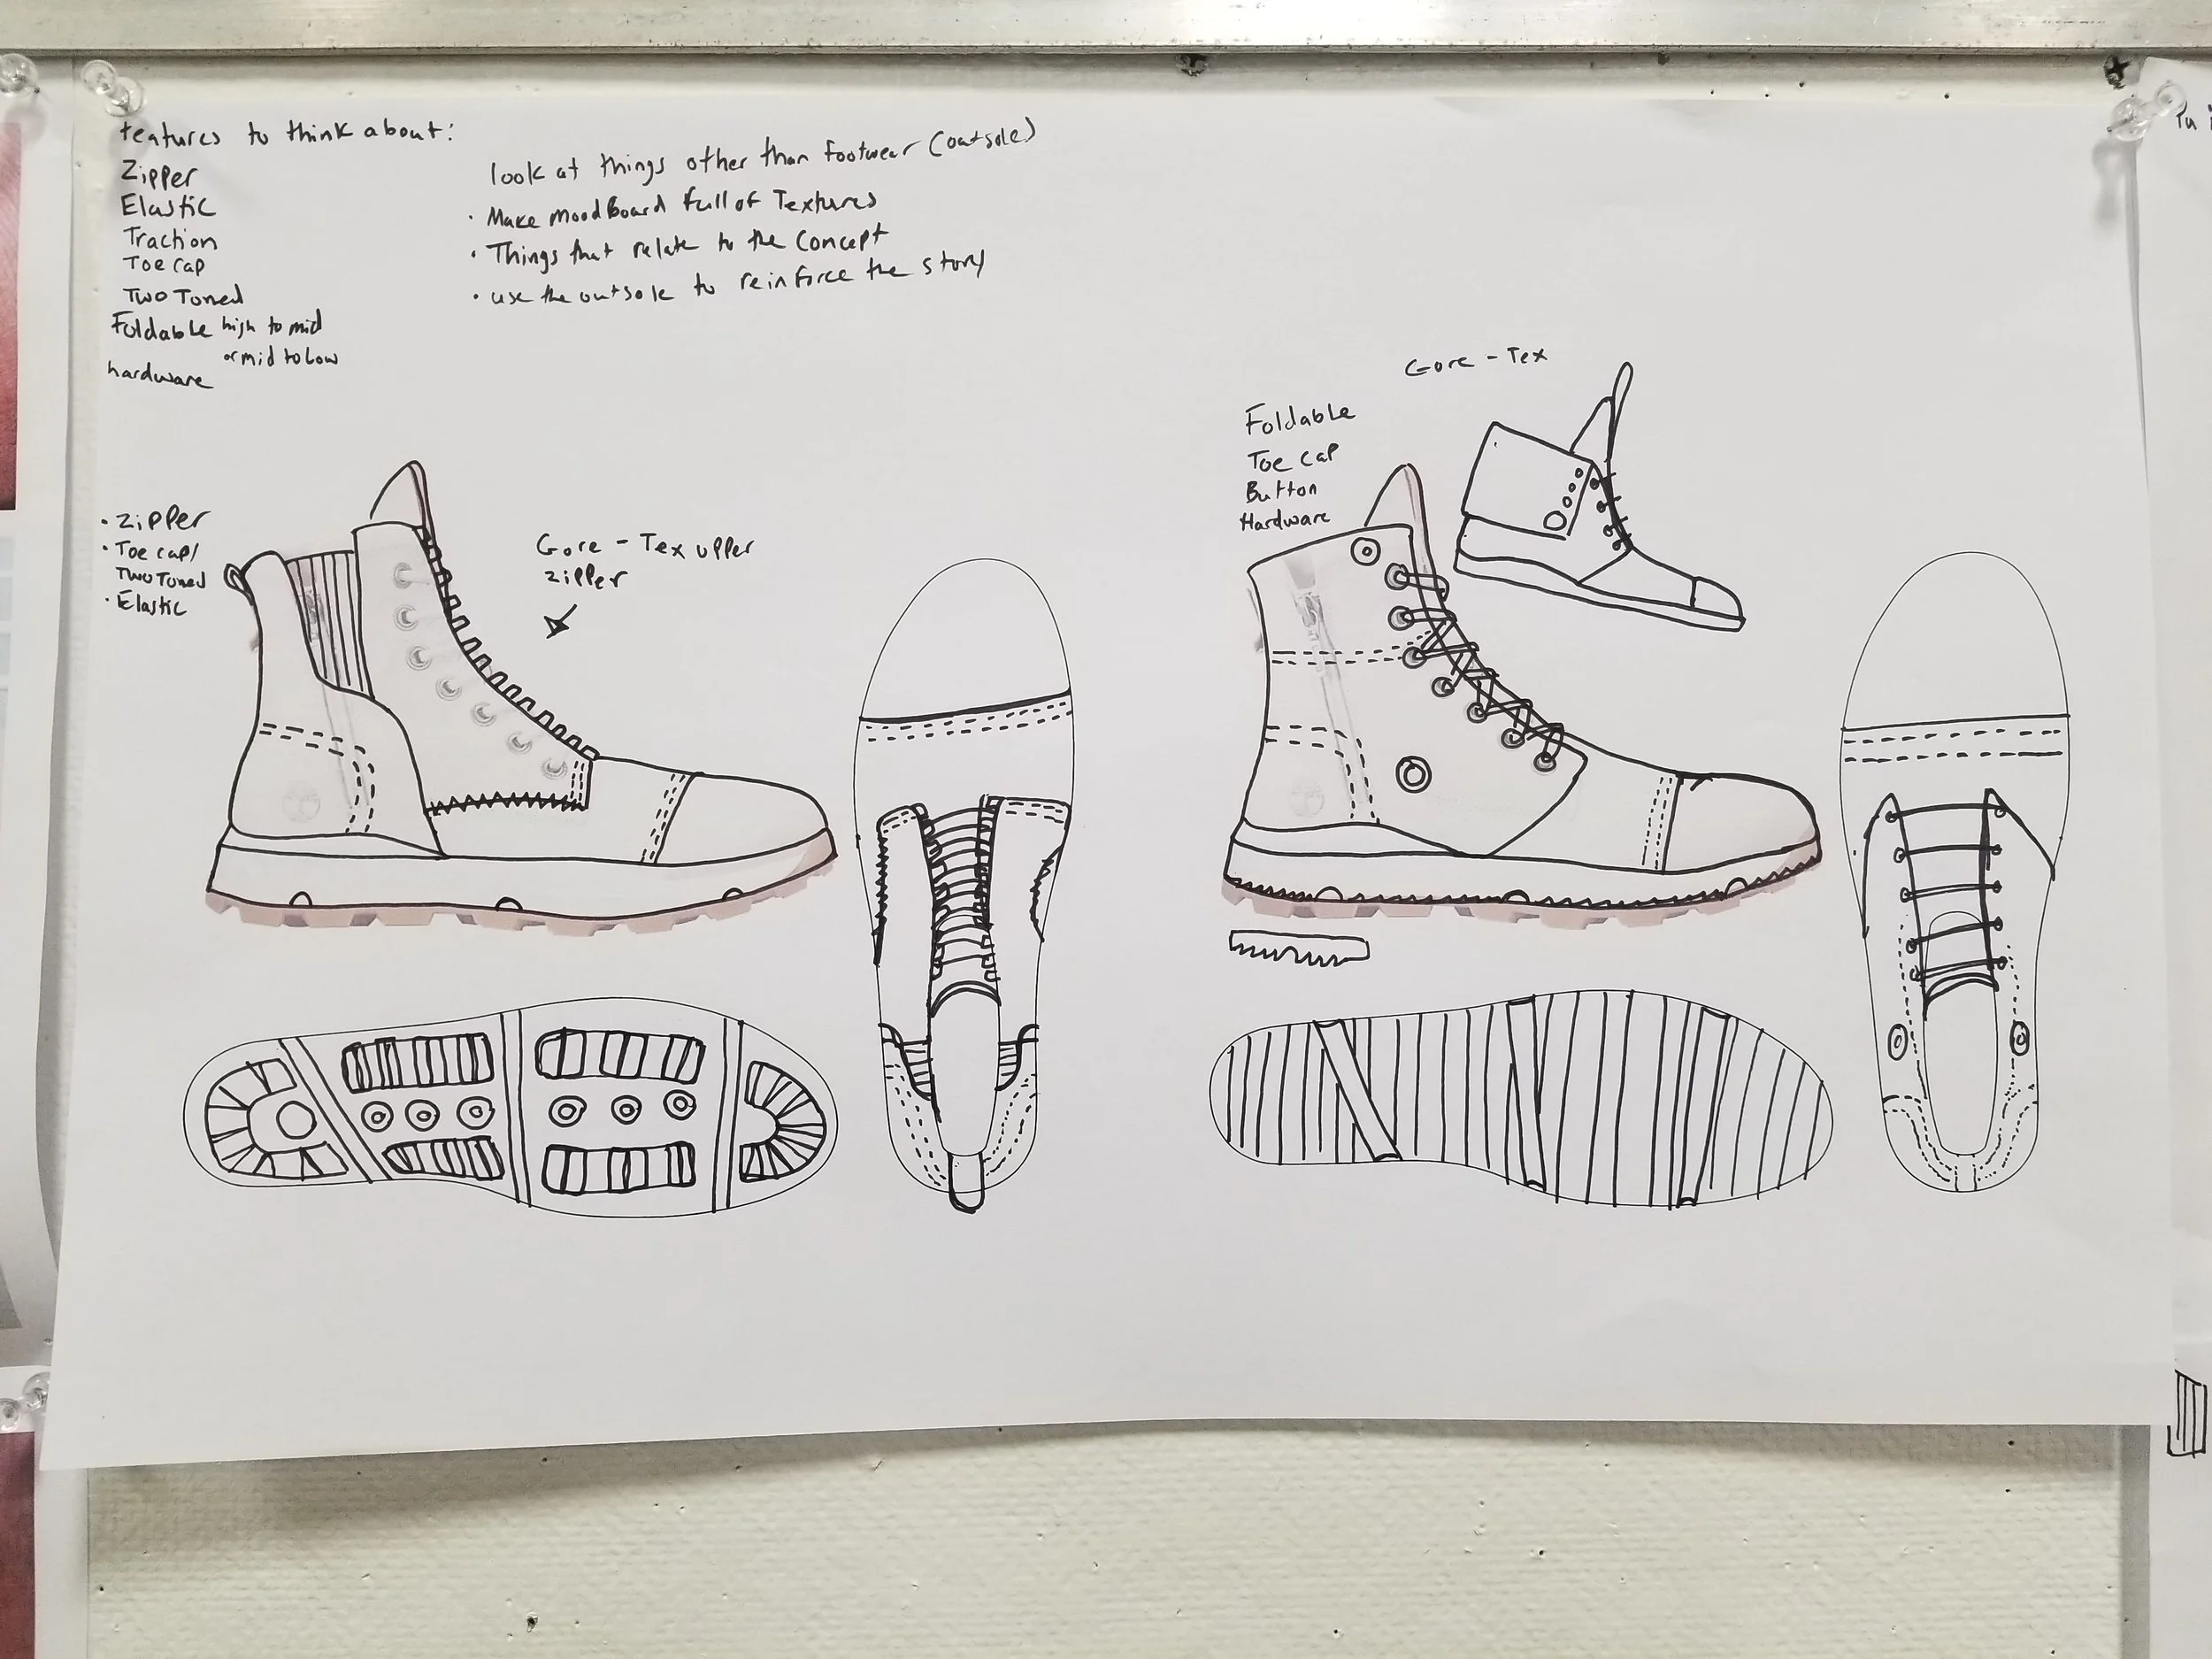 features to think about:
Zipper
Elastic
Traction
Toe cap
Two Toned
Foldable high to mid
or mid to Low
hardware
look at things other than footwear (outsole)
• Make moodBoard full of Textures
• Things that relate to the Concept
• use the outsole to reinforce the story
• Zipper
• Toe cap/
Two Toned
• Elastic
Gore-Tex upper
zipper
Gore-Tex
Foldable
Toe cap
Button
Hardware